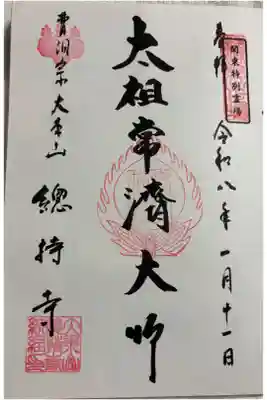 奉拝 令和八年一月十一日
関東特別霊場
太祖常濟大師
曹洞宗大本山
總持寺